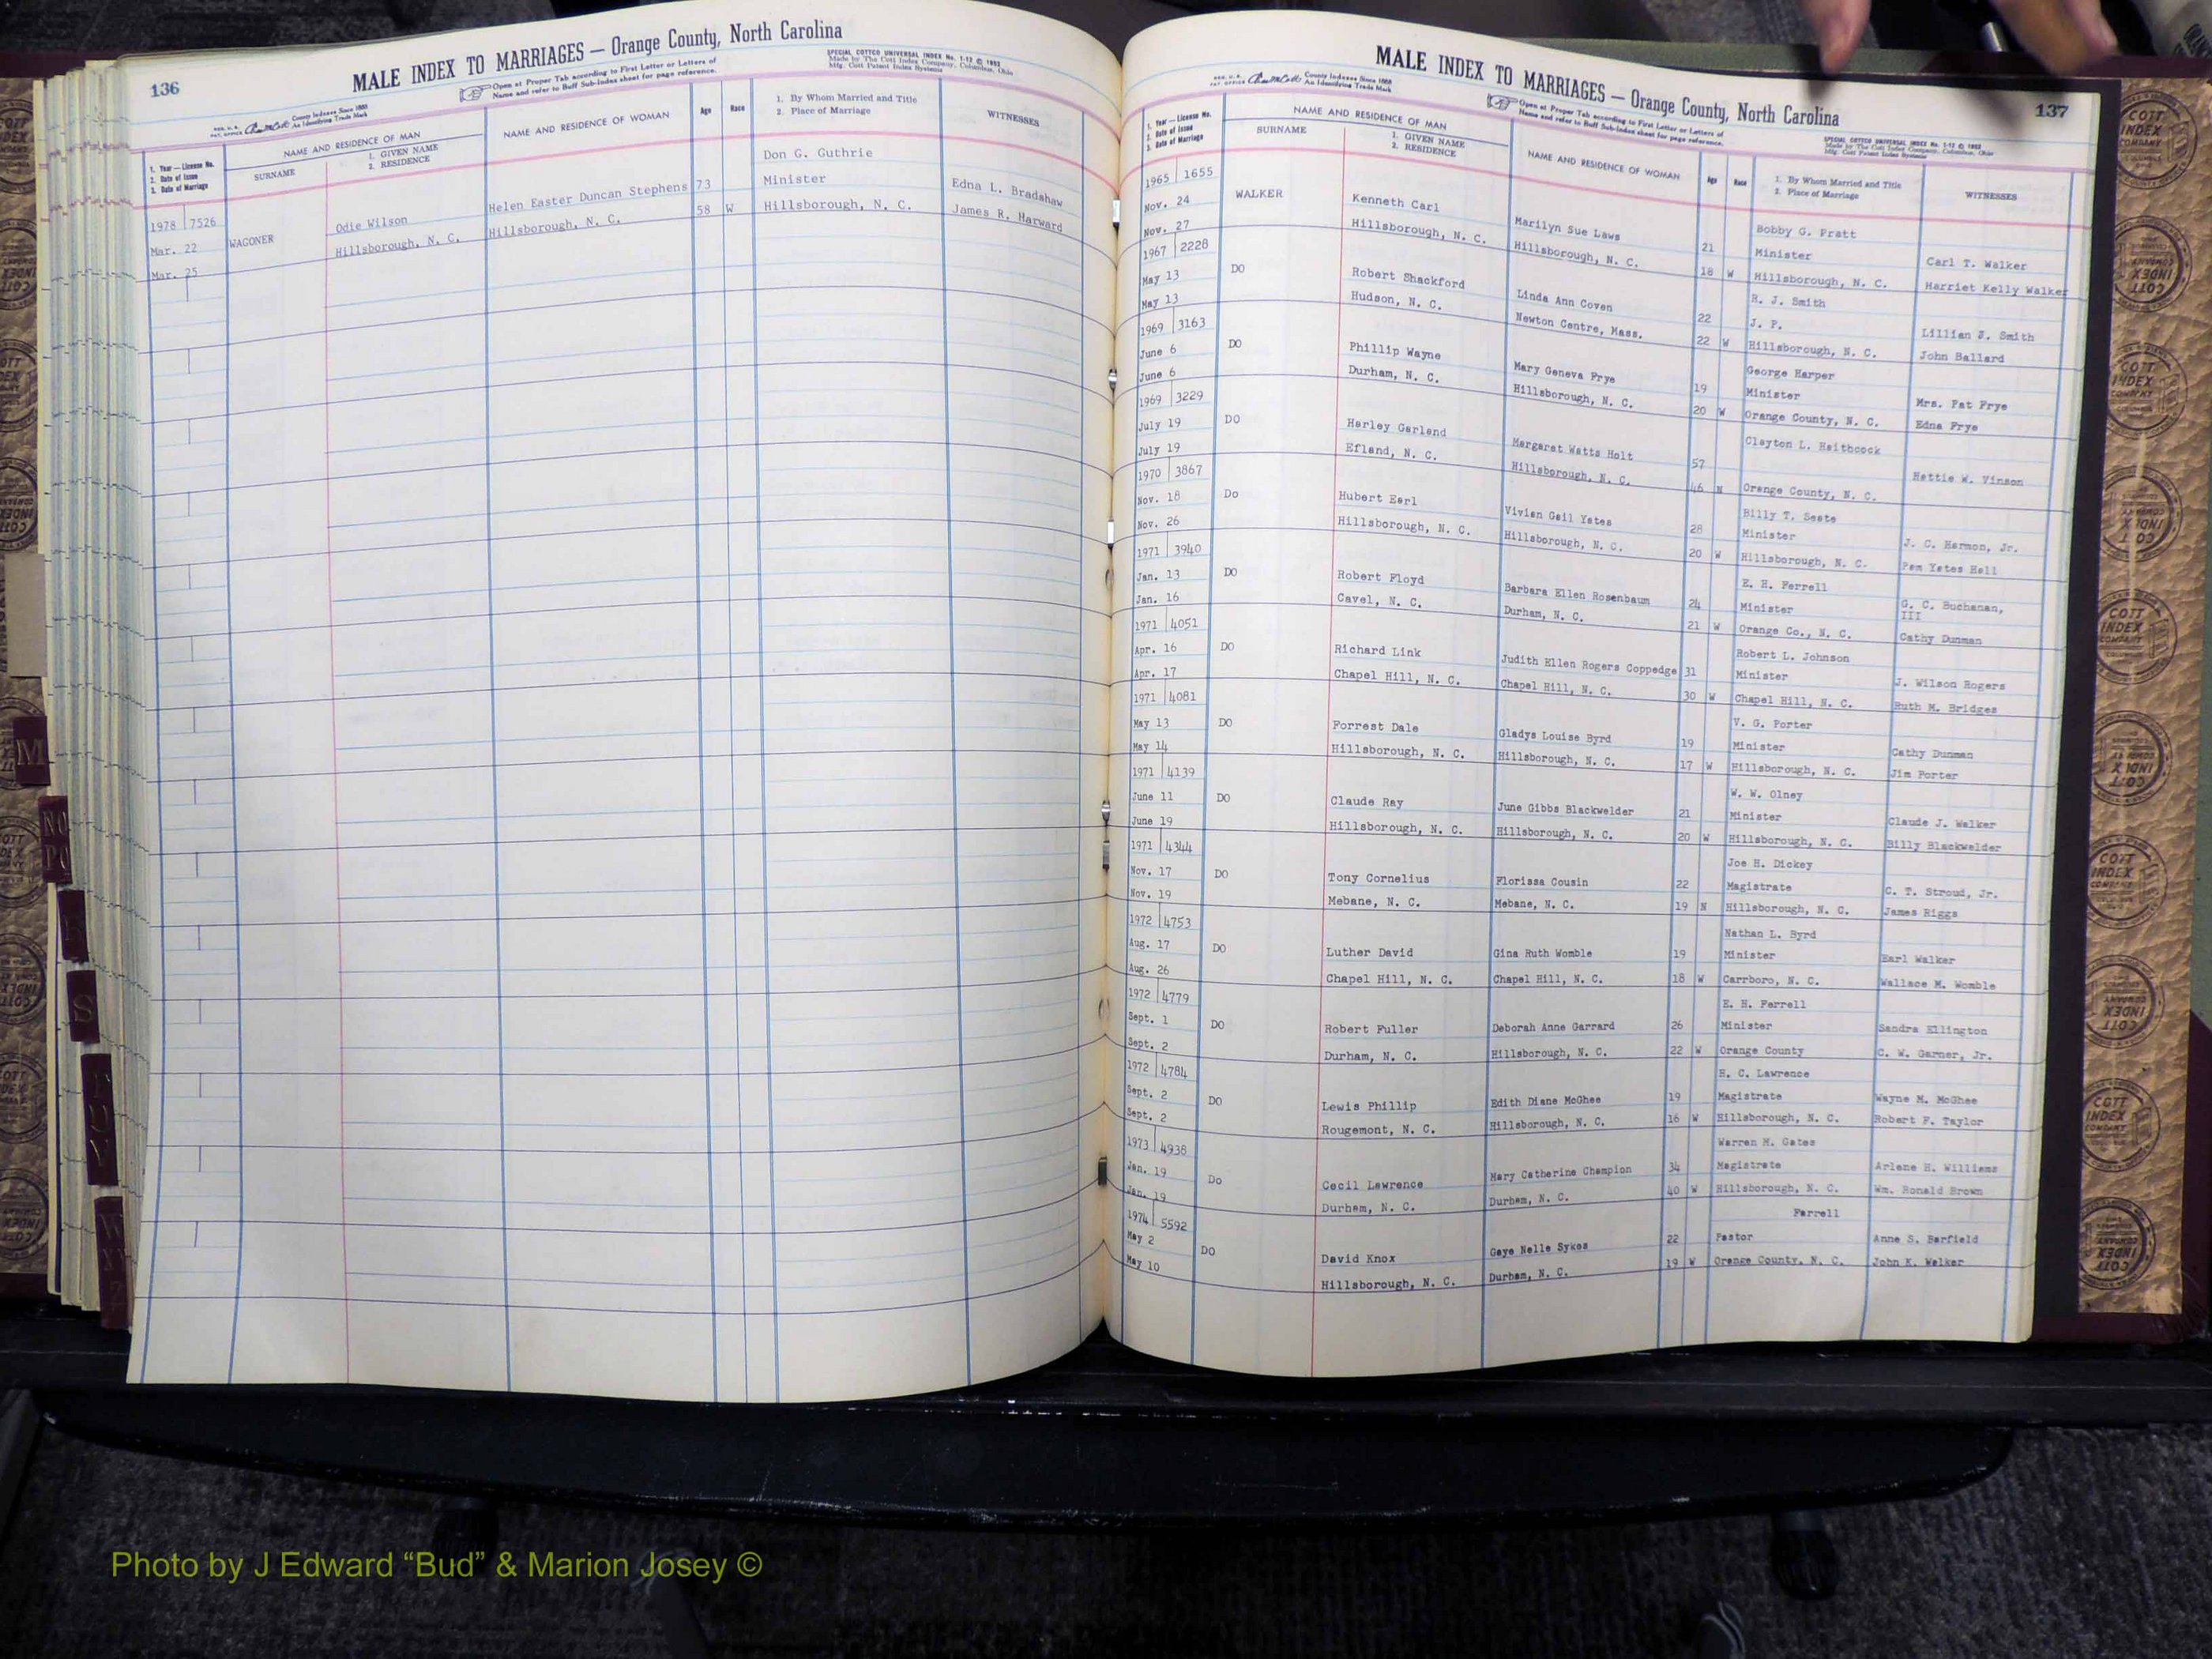 136
MALE INDEX TO MARRIAGES — Orange County, North Carolina
Open at Proper Tab according to First Letter or Letters of
Name and refer to Buff Sub-Index sheet for page reference.
SPECIAL COTTCO UNIVERSAL INDEX No. 1-12 © 1953
Made by The Cott Index Company, Columbus, Ohio
Mfg. Cott Patent Index Systems
County Indexes Since 1888
An Identifying Trade Mark
1. Year — License No.
2. Date of Issue
3. Date of Marriage
NAME AND RESIDENCE OF MAN
SURNAME
1. GIVEN NAME
2. RESIDENCE
NAME AND RESIDENCE OF WOMAN
Age
Race
1. By Whom Married and Title
2. Place of Marriage
WITNESSES
1978 7526
Mar. 22
Mar. 25
WAGONER
Odie Wilson
Hillsborough, N. C.
Helen Easter Duncan Stephens
Hillsborough, N. C.
73
58 W
Don G. Guthrie
Minister
Hillsborough, N. C.
Edna L. Bradshaw
James R. Harward
137
MALE INDEX TO MARRIAGES — Orange County, North Carolina
Open at Proper Tab according to First Letter or Letters of
Name and refer to Buff Sub-Index sheet for page reference.
SPECIAL COTTCO UNIVERSAL INDEX No. 1-12 © 1953
Made by The Cott Index Company, Columbus, Ohio
Mfg. Cott Patent Index Systems
County Indexes Since 1888
An Identifying Trade Mark
1. Year — License No.
2. Date of Issue
3. Date of Marriage
NAME AND RESIDENCE OF MAN
SURNAME
1. GIVEN NAME
2. RESIDENCE
NAME AND RESIDENCE OF WOMAN
Age
Race
1. By Whom Married and Title
2. Place of Marriage
WITNESSES
1965 1655
Nov. 24
Nov. 27
WALKER
Kenneth Carl
Hillsborough, N. C.
Marilyn Sue Laws
Hillsborough, N. C.
21
18 W
Bobby G. Pratt
Minister
Hillsborough, N. C.
Carl T. Walker
Harriet Kelly Walker
1967 2228
May 13
May 13
DO
Robert Shackford
Hudson, N. C.
Linda Ann Coven
Newton Centre, Mass.
22
22 W
H. J. Smith
J. P.
Hillsborough, N. C.
Lillian S. Smith
John Ballard
1969 3163
June 6
June 6
DO
Phillip Wayne
Durham, N. C.
Mary Geneva Frye
Hillsborough, N. C.
19
20 W
George Harper
Minister
Orange County, N. C.
Mrs. Pat Frye
Edna Frye
1969 3229
July 19
July 19
DO
Harley Garland
Efland, N. C.
Margaret Watts Holt
Hillsborough, N. C.
57
46 N
Clayton L. Haithcock
Orange County, N. C.
Hattie W. Vinson
1970 3867
Nov. 18
Nov. 26
Do
Hubert Earl
Hillsborough, N. C.
Vivian Gail Yates
Hillsborough, N. C.
28
20 W
Billy T. Seate
Minister
Hillsborough, N. C.
J. C. Harmon, Jr.
Pam Yates Hall
1971 3940
Jan. 13
Jan. 16
DO
Robert Floyd
Cavel, N. C.
Barbara Ellen Rosenbaum
Durham, N. C.
24
21 W
E. H. Ferrell
Minister
Orange Co., N. C.
G. C. Buchanan,
III
Cathy Dunman
1971 4051
Apr. 16
Apr. 17
DO
Richard Link
Chapel Hill, N. C.
Judith Ellen Rogers Coppedge
Chapel Hill, N. C.
31
30 W
Robert L. Johnson
Minister
Chapel Hill, N. C.
J. Wilson Rogers
Ruth M. Bridges
1971 4081
May 13
May 14
DO
Forrest Dale
Hillsborough, N. C.
Gladys Louise Byrd
Hillsborough, N. C.
19
17 W
V. G. Porter
Minister
Hillsborough, N. C.
Cathy Dunman
Jim Porter
1971 4139
June 11
June 19
DO
Claude Ray
Hillsborough, N. C.
June Gibbs Blackwelder
Hillsborough, N. C.
21
20 W
W. W. Olney
Minister
Hillsborough, N. C.
Claude J. Walker
Billy Blackwelder
1971 4344
Nov. 17
Nov. 19
DO
Tony Cornelius
Mebane, N. C.
Florissa Cousin
Mebane, N. C.
22
19 N
Joe H. Dickey
Magistrate
Hillsborough, N. C.
C. T. Stroud, Jr.
James Riggs
1972 4753
Aug. 17
Aug. 26
DO
Luther David
Chapel Hill, N. C.
Gina Ruth Womble
Chapel Hill, N. C.
19
18 W
Nathan L. Byrd
Minister
Carrboro, N. C.
Earl Walker
Wallace M. Womble
1972 4779
Sept. 1
Sept. 2
DO
Robert Fuller
Durham, N. C.
Deborah Anne Garrard
Hillsborough, N. C.
26
22 W
E. H. Ferrell
Minister
Orange County
Sandra Ellington
C. W. Garner, Jr.
1972 4784
Sept. 2
Sept. 2
DO
Lewis Phillip
Rougemont, N. C.
Edith Diane McGhee
Hillsborough, N. C.
19
16 W
H. C. Lawrence
Magistrate
Hillsborough, N. C.
Wayne M. McGhee
Robert F. Taylor
1973 4938
Jan. 19
Jan. 19
Do
Cecil Lawrence
Durham, N. C.
Mary Catherine Champion
Durham, N. C.
34
40 W
Warren M. Gates
Magistrate
Hillsborough, N. C.
Arlene H. Williams
Wm. Ronald Brown
1974 5592
May 2
May 10
DO
David Knox
Hillsborough, N. C.
Gaye Nelle Sykes
Durham, N. C.
22
19 W
Farrell
Pastor
Orange County, N. C.
Anne S. Barfield
John K. Walker
M
S
Photo by J Edward “Bud” & Marion Josey ©